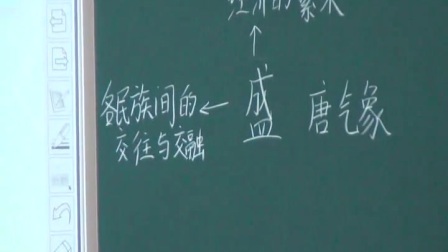 经济的繁荣
各民族间的
交往与交融
盛 唐气象